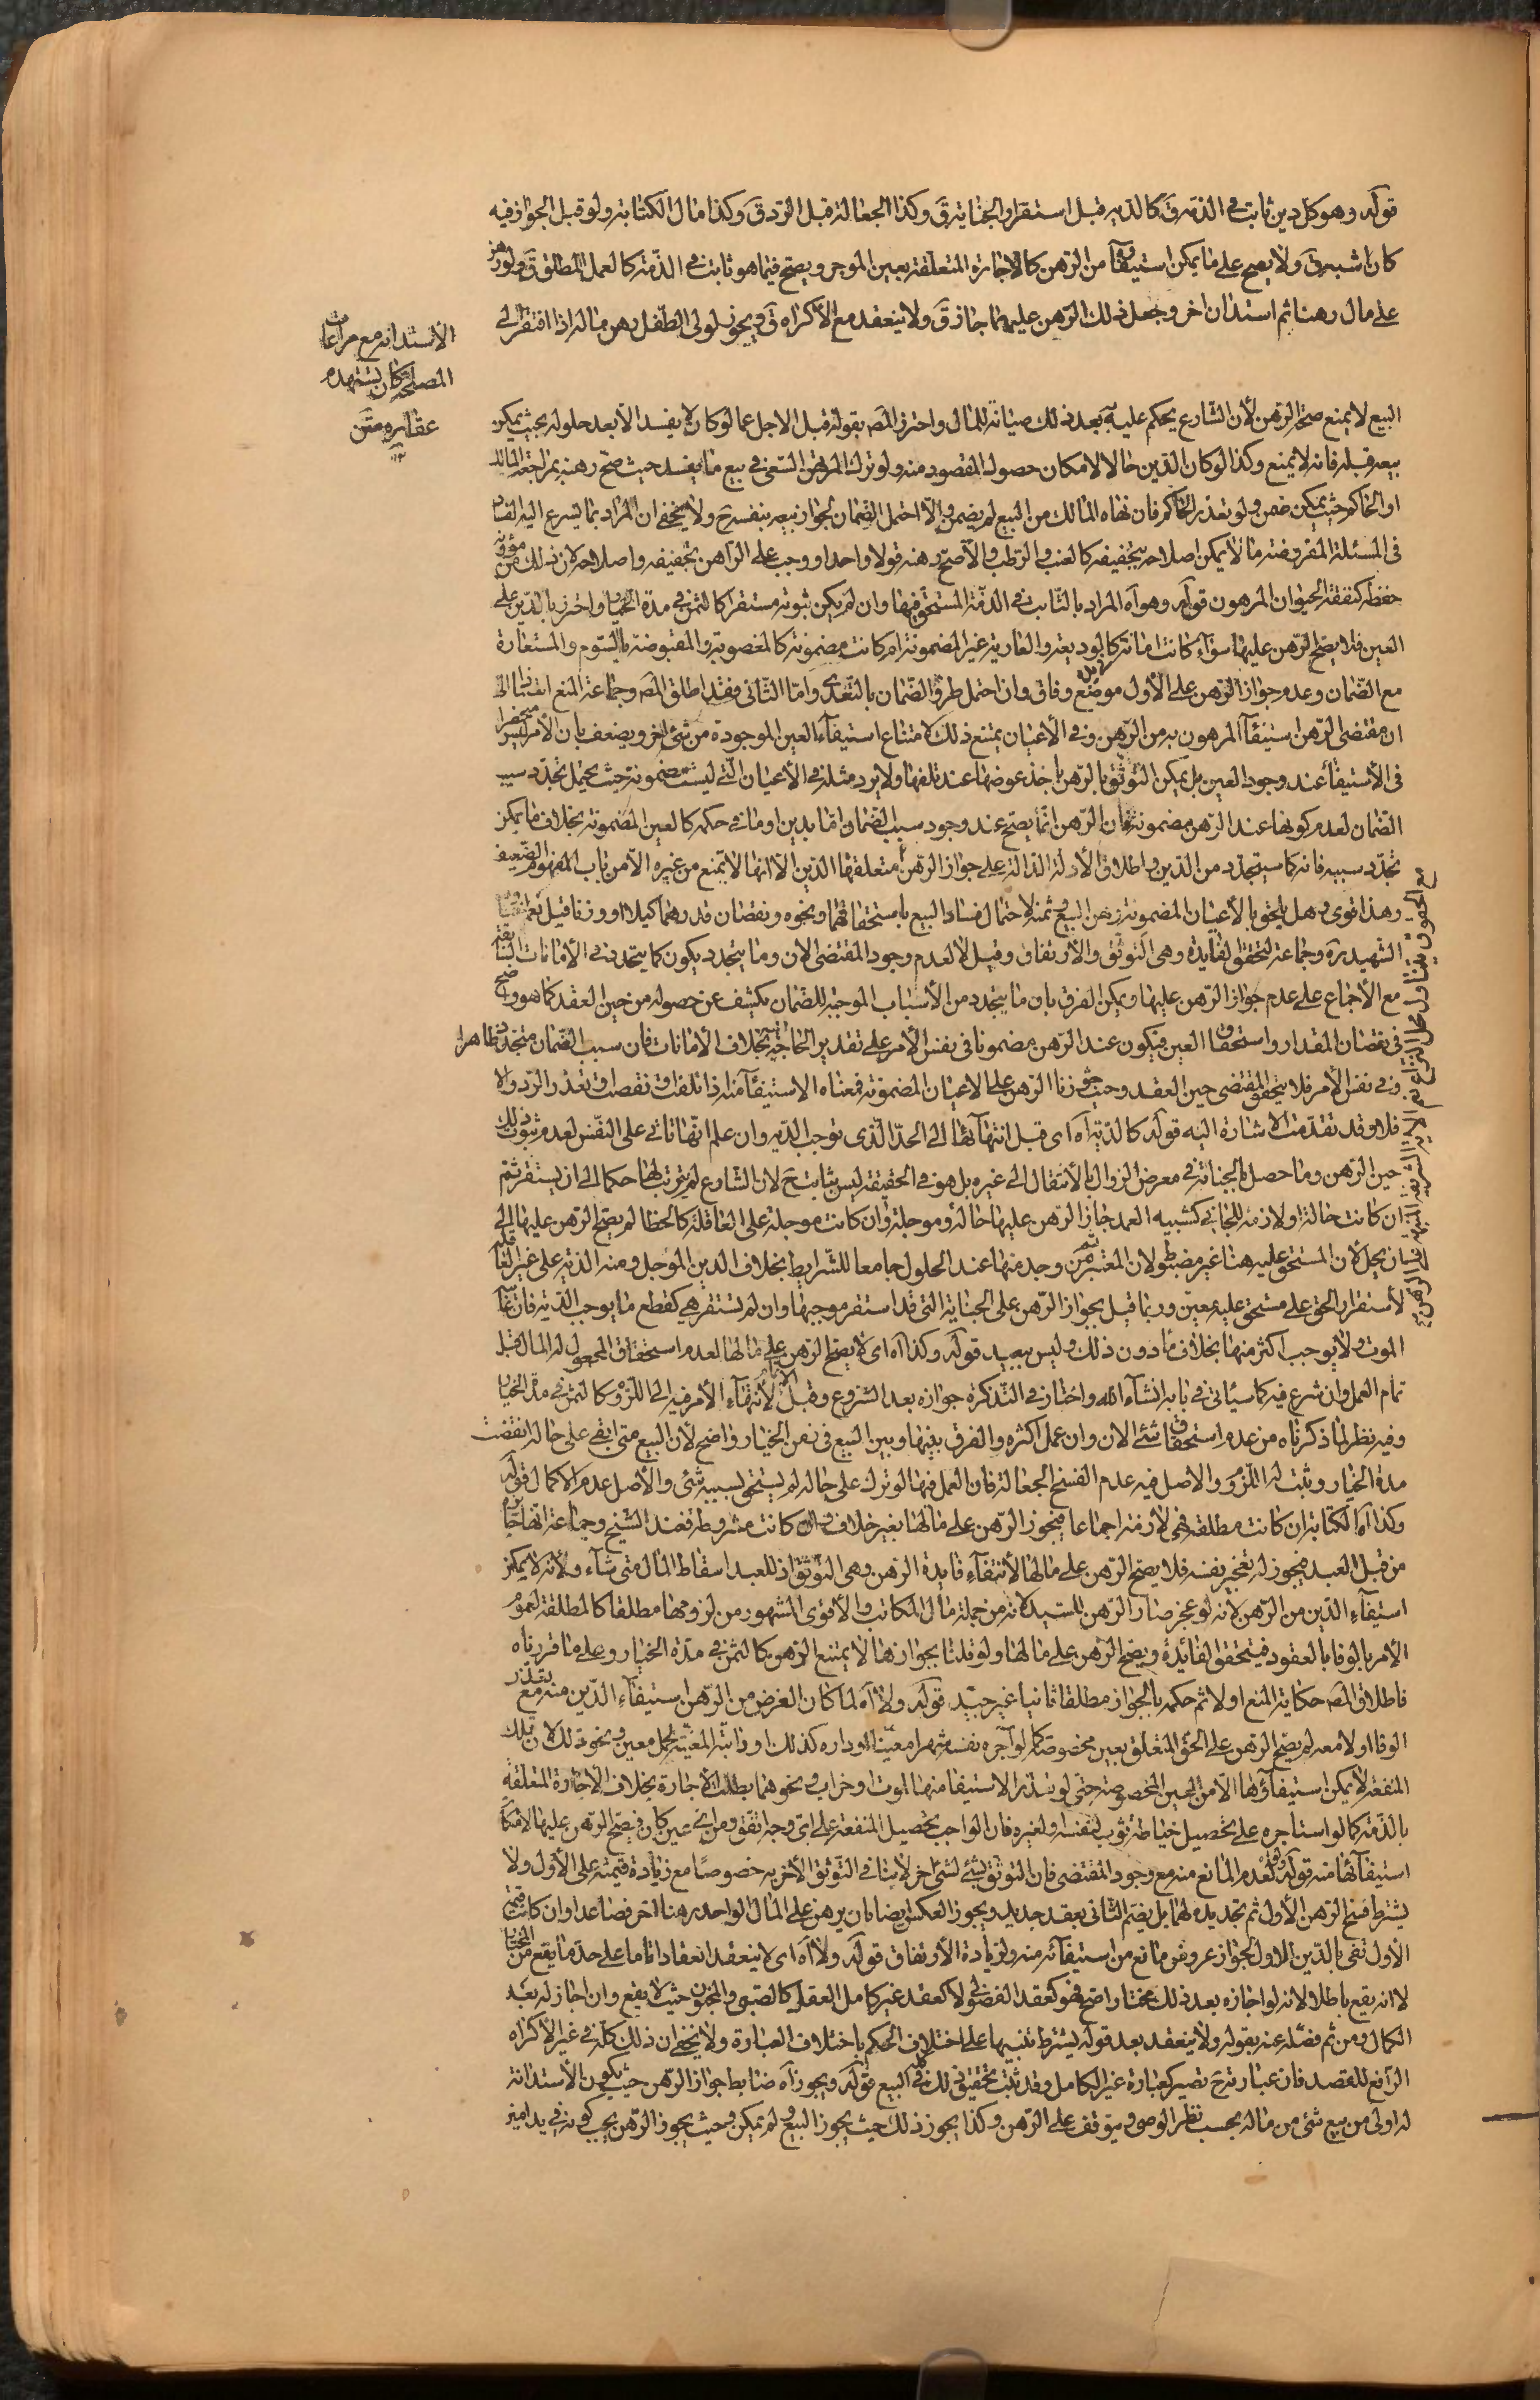 قوله وهو كل دين ثابت في الذمة ق كالدية قبل استقرار الجناية ق وكذا الجعالة قبل الرد ق وكذا مال الكتابة ولو قيل الجواز فيه
كان اشبه ق ولا يصح على ما يمكن استيفاؤه من الرهن كالاجارة المتعلقة بعين الموجر ويصح فيما هو ثابت في الذمة كالعمل المطلق ق ولو رهن
على مال رهنا ثم استدان اخر وجعل ذلك الرهن عليهما جاز ق ولا ينعقد مع الاكراه ق ويجوز لولى الطفل رهن ماله اذا افتقر الى
الاستدانة مع مراعات
المصلحة كان يستهدم
عقاره متن
البيع لا يمنع صحة الرهن لأن الشارع يحكم عليه به بعد ذلك صيانة للمال واحترز المصـ بقوله قبل الاجل عما لو كان لا يفسد الا بعد حلوله بحيث يمكن
بيعه قبله فانه لا يمنع وكذا لو كان الدين حالا لامكان حصول المقصود منه ولو ترك المرتهن السعى في بيع ما يفسد حيث صح رهنه بمراجعة المالك
او الحاكم حيث يمكن ضمن ولو تعذر الحاكم فان نهاه المالك من البيع لم يضمن والا احتمل الضمان لجواز بيعه بنفسه ح ولا يخفى ان المراد بما يسرع اليه الفساد
فى المسئلة المفروضة ما لا يمكن اصلاحه بتجفيفه كالعنب والرطب والا صح رهنه قولا واحدا ووجب على الراهن تجفيفه واصلاحه لان ذلك من مؤونة
حفظه كنفقة الحيوان المرهون قوله وهو آه المراد بالثابت في الذمة المستحق فيها وان لم يكن ثبوته مستقرا كالثمن في مدة الخيار واحترز بالدين على
العين فلا يصح الرهن عليها سواء كانت امانة كالوديعة والعارية غير المضمونة ام كانت مضمونة كالمغصوبة والمقبوضة بالسوم والمستعارة
مع الضمان وعدم جواز الرهن على الأول موضع وفاق وان احتمل طرو الضمان بالتعدى واما الثانى فقد اطلق المصـ وجماعة المنع استنادا الى
ان مقتضى الرهن استيفاء المرهون به من الرهن وفى الأعيان يمتنع ذلك لامتناع استيفاء العين الموجودة من شئ اخر ويضعف بان الأمر ليس منحصرا
فى الأستيفاء عند وجود العين بل يمكن التوثق بالرهن باخذ عوضها عند تلفها ولا يرد مثله في الأعيان التى ليست مضمونة حيث يحتمل تجدد سبب
الضمان لعدم كونها عند الرهن مضمونة فان الرهن انما يصح عند وجود سبب الضمان اما بدين او ما في حكمه كالعين المضمونة بخلاف ما يمكن
تجدد سببه فانه كما سيتجدد من الدين واطلاق الأدلة الدالة على جواز الرهن متعلقها الدين الا انها لا تمنع من غيره الا من باب المفهوم الضعيف
وهذا قوى وهل يلحق بالأعيان المضمونة رهن المبيع وثمنه لاحتمال فساد البيع باستحقاقهما ونحوه ونقصان قدرهما كيلا او وزنا قيل نعم
الشهيد ره وجماعة لتحقق الفايدة وهى التوثق والأرتفاق وقيل لا لعدم وجود المقتضى الان وما يتجدد يكون كما يتجدد في الأمانات
مع الأجماع على عدم جواز الرهن عليها ويمكن الفرق بان ما يتجدد من الأسباب الموجبة للضمان يكشف عن حصوله من حين العقد كما هو واضح
في نقصان المقدار واستحقاق العين فيكون عند الرهن مضمونا في نفس الأمر على تقدير الحاجة بخلاف الأمانات فان سبب الضمان متجدد ظاهرا
وفي نفس الأمر فلا يتحقق المقتضى حين العقد وحيث جوزنا الرهن على الاعيان المضمونة فمعناه الاستيفاء منه اذا تلفت او نقصت او تعذر الرد والا
فلا وقد تقدمت الاشارة اليه قوله كالدية آه اى قبل انتهائها الى الحد الذى توجب الدية وان علم انها تأتى على النفس لعدم ثبوت ذلك
حين الرهن وما حصل بالجناية في معرض الزوال بالأنتقال الى غيره بل هو في الحقيقة ليس بثابت ح لان الشارع لم يرتب لها حكما الى ان يستقر ثم
ان كانت حالة او لازمة للجاني كشبيه العمد جاز الرهن عليها حالة وموجلة وان كانت موجلة على العاقلة كالخطا لم يصح الرهن عليها الى
ان يحل لأن المستحق عليه هنا غير مضبوط لان المعتبر بمن وجد منها عند الحلول جامعا للشرايط بخلاف الدين الموجل ومنه الدية على غير العاقلة
لأستقرار الحق على مستحق عليه معين وربما قيل بجواز الرهن على الجناية التى قد استقر موجبها وان لم تستقر هي كقطع ما يوجب الدية فان
الموت لا يوجب اكثر منها بخلاف ما دون ذلك وليس ببعيد قوله وكذا آه اى لا يصح الرهن على مالها لعدم استحقاق المجعول له المال قبل
تمام العمل وان شرع فيه كما سيأتى في بابه انشاء الله واختار في التذكرة جوازه بعد الشروع وقبل الاتمام لانتهاء الأمر فيه الى اللزوم كالثمن في مدة الخيار
وفيه نظر لما ذكرناه من عدم استحقاق شئ الان وان عمل اكثره والفرق بينها وبين البيع في زمن الخيار واضح لأن البيع متى ابقى على حاله انقضت
مدة الخيار وثبت له اللزوم والاصل فيه عدم الفسخ الجعالة فان العمل فيها لو ترك على حاله لم يستحق بسببه شئ والأصل عدم الاكمال قوله
وكذا آه الكتابة ان كانت مطلقة فهى لازمة اجماعا فيجوز الرهن على مالها بغير خلاف وان كانت مشروطة فعند الشيخ وجماعة انها جايزة
من قبل العبد فيجوز له تعجيز نفسه فلا يصح الرهن على مالها لأنتفاء فايدة الرهن وهى التوثق اذ للعبد اسقاط المال متى شاء ولأنه لا يمكن
استيفاء الدين من الرهن لانه لو عجز صار الرهن للسيد لانه من جملة مال المكاتب والأقوى المشهور من لزومها مطلقا كالمطلقة لعموم
الأمر بالوفا بالعقود فيتحقق الفائدة ويصح الرهن على مالها ولو قلنا بجوازها لا يمتنع الرهن كالثمن في مدة الخيار وعلى ما قررناه
فاطلاق المصـ حكاية المنع اولا ثم حكمه بالجواز مطلقا ثانيا غير جيد قوله ولا آه لما كان الغرض من الرهن استيفاء الدين منه مع تعذر
الوفا او لا معه لم يصح الرهن على الحق المتعلق بعين مخصوصة كما لو آجره نفسه شهرا معينا او داره كذلك او دابته المعينة لحمل معين ونحو ذلك لان تلك
المنفعة لا يمكن استيفاؤها الا من العين المخصوصة حتى لو تعذر الاستيفا منها لموت او خراب ونحوهما بطلت الأجارة بخلاف الأجارة المتعلقة
بالذمة كما لو استاجره على تحصيل خياطة ثوب بنفسه او لغيره فان الواجب تحصيل المنفعة على اى وجه اتفق ومن اى عين كان فيصح الرهن عليها لامكان
استيفائها منه قوله ولو لعدم المانع منه مع وجود المقتضى فان التوثق بشئ لشئ اخر لا ينافى التوثق الأخر به خصوصا مع زيادة قيمته على الأول ولا
يشترط فسخ الرهن الأول ثم تجديده لهما بل يضم الثانى بعقد جديد ويجوز العكس ايضا بان يرهن على المال الواحد رهنا اخر فصاعدا وان كانت قيمة
الأول تفى بالدين الاول لجواز عروض مانع من استيفائه منه ولزيادة الأرتفاق قوله ولا آه اى لا ينعقد انعقادا تاما على حد ما يقع من المختار
لا انه يقع باطلا لانه لو اجازه بعد ذلك مختارا صح فهو كعقد الفضولى لا كعقد غير كامل العقل كالصبى والمجنون حيث لا يقع وان اجاز له بعد
الكمال ومن ثم فصله عنه بقوله ولا ينعقد بعد قوله يشترط تنبيها على اختلاف الحكم باختلاف العبارة ولا يخفى ان ذلك كله في غير الأكراه
الرافع للقصد فان عبارته ح تصير كعبارة غير الكامل وقد ثبت تحقيق ذلك في البيع قوله ويجوز آه ضابط جواز الرهن حيث يكون الأستدانة
له اولى من بيع شئ من ماله بحسب نظر الوصى ويتوقف على الرهن وكذا يجوز ذلك حيث يجوز البيع ولم يمكن وحيث يجوز الرهن يجب كونه في يد امين